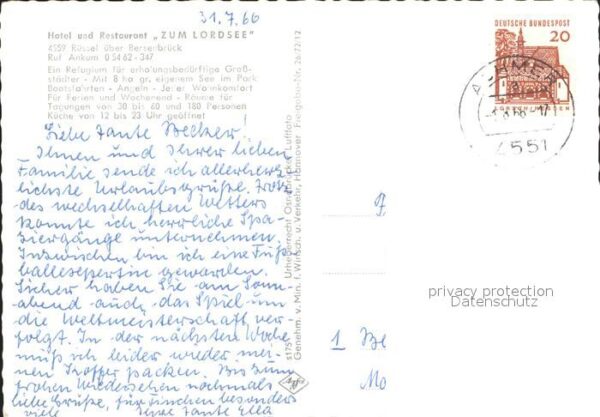 31.7.66
Hotel und Restaurant „ZUM LORDSEE"
4559 Rüssel über Bersenbrück
Ruf Ankum 0 54 62 - 347
Ein Refugium für erholungsbedürftige Groß-
städter - Mit 8 ha gr. eigenem See im Park
Bootsfahrten - Angeln - Jeder Wohnkomfort
Für Ferien und Wochenend - Räume für
Tagungen von 30 bis 60 und 180 Personen
Küche von 12 bis 23 Uhr geöffnet
Liebe Tante Becker!
Ihnen und Ihrer lieben
Familie sende ich allerherz
lichste Urlaubsgrüße. Trotz
des wechselhaften Wetters
konnte ich herrliche Spa
ziergänge unternehmen.
Inzwischen bin ich eine Fuß
ballexpertin geworden.
Sicher haben Sie am Sonn
abend auch das Spiel um
die Weltmeisterschaft ver-
folgt. In der nächsten Woche
muß ich leider wieder mei-
nen Koffer packen. Bis zum
frohen Wiedersehen nochmals
liebe Grüße, für besonders
viele Ihre Tante Ella
s1751
Urheberrecht Osnabrücker Luftfoto
Genehm. v. Min. f. Wirtsch. u. Verkehr, Hannover, Freigabe-Nr. 26/72/12
Agfa
DEUTSCHE BUNDESPOST
20
LORSCH/HESSEN
4551
1 Be
Mo
privacy protection
Datenschutz